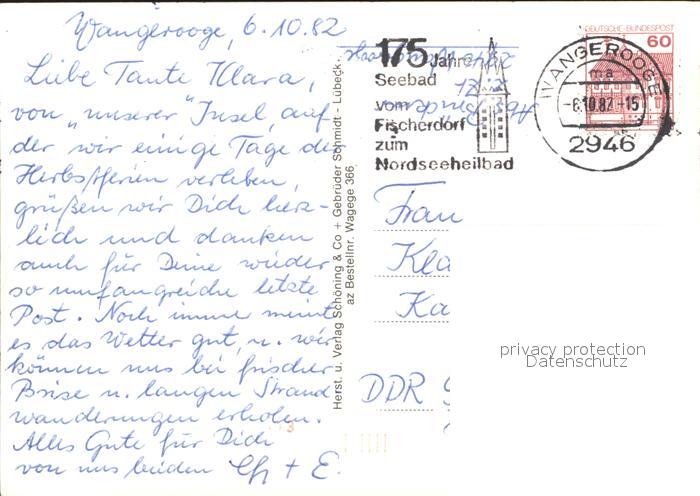 Wangerooge, 6.10.82
Liebe Tante Klara,
von "unserer" Insel, auf
der wir einige Tage de
Herbstferien verleben,
grüßen wir Dich herz-
lich und danken
auch für Deine wieder
so umfangreiche letzte
Post. Noch immer meint
es das Wetter gut, u. wir
können uns bei frischer
Brise u. langen Strand
wanderungen erholen.
Alles Gute für Dich
von uns beiden + E.
Herst. u. Verlag Schöning & Co + Gebrüder Schmidt - Lübeck
az Bestellnr. Wagege 366
175 Jahre
Seebad
vom
Fischerdorf
zum
Nordseeheilbad
DEUTSCHE BUNDESPOST
60
WANGEROOGE
ma
-6.10.82-15
2946
Frau
Kla
Ka
DDR
privacy protection
Datenschutz